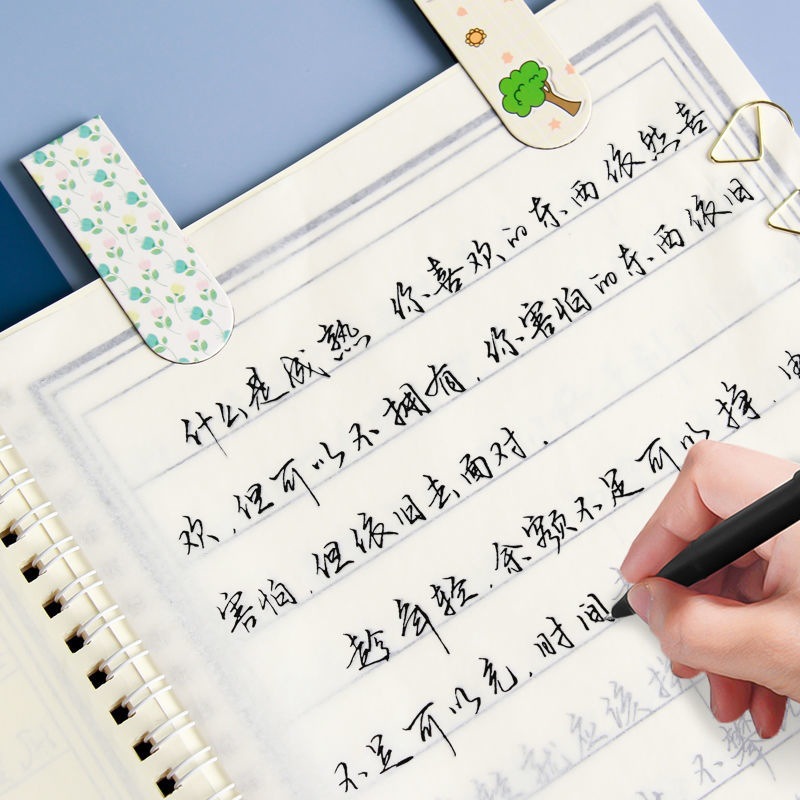 什么是成熟 你喜欢的东西依然喜
欢,但可以不拥有,你害怕的东西依旧
害怕,但依旧去面对.
趁年轻,余额不足可以挣,电
不足可以充,时间
轻就应该拼
不攀